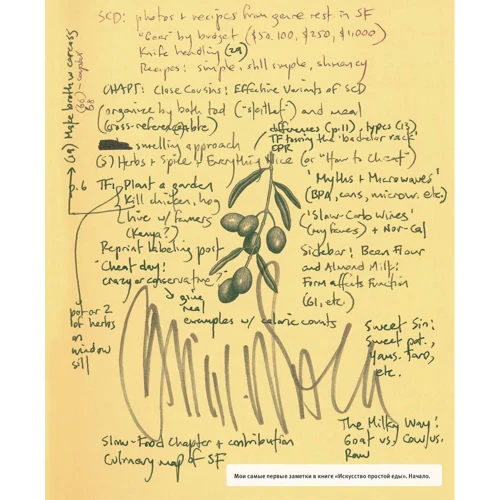 SCD: photos + recipes from genre rest. in SF
"Gear" by budget ($50, 100, $250, $1,000)
Knife handling (29)
Recipes: simple, still simple, shmancy
CHAPT: Close Cousins: Effective Variants of SCD
(organize by both tool ("skillet") and meal
(cross-referenceable)
differences (p.11), types (13)
TF tossing the 'bachelor rack'
CPR
smelling approach
(5) Herbs + Spice + Everything Nice (or "How to Cheat")
p.6 TF: Plant a garden
Kill chicken, hog
live w/ farmers
(Kenya?)
'Myths + Microwaves'
(BPA, cans, microw. etc.)
'Slow-Carb Wines'
(my faves) + Nor-Cal
Reprint labeling post
"Cheat day:
crazy or conservative?"
give
real
examples w/ caloric counts
Sidebar: Bean Flour
and Almond Milk:
Form affects Function
(GI, etc.)
(19) Make broth w carcass
(66) - compiler
68
pot or 2
of herbs
on
window
sill
Sweet Sin:
Sweet pot.,
Yams, Taro,
etc.
Slow-Food Chapter + contribution
Culinary map of SF
The Milky Way:
Goat vs. Cow/vs.
Raw
Мои самые первые заметки в книге «Искусство простой еды». Начало.